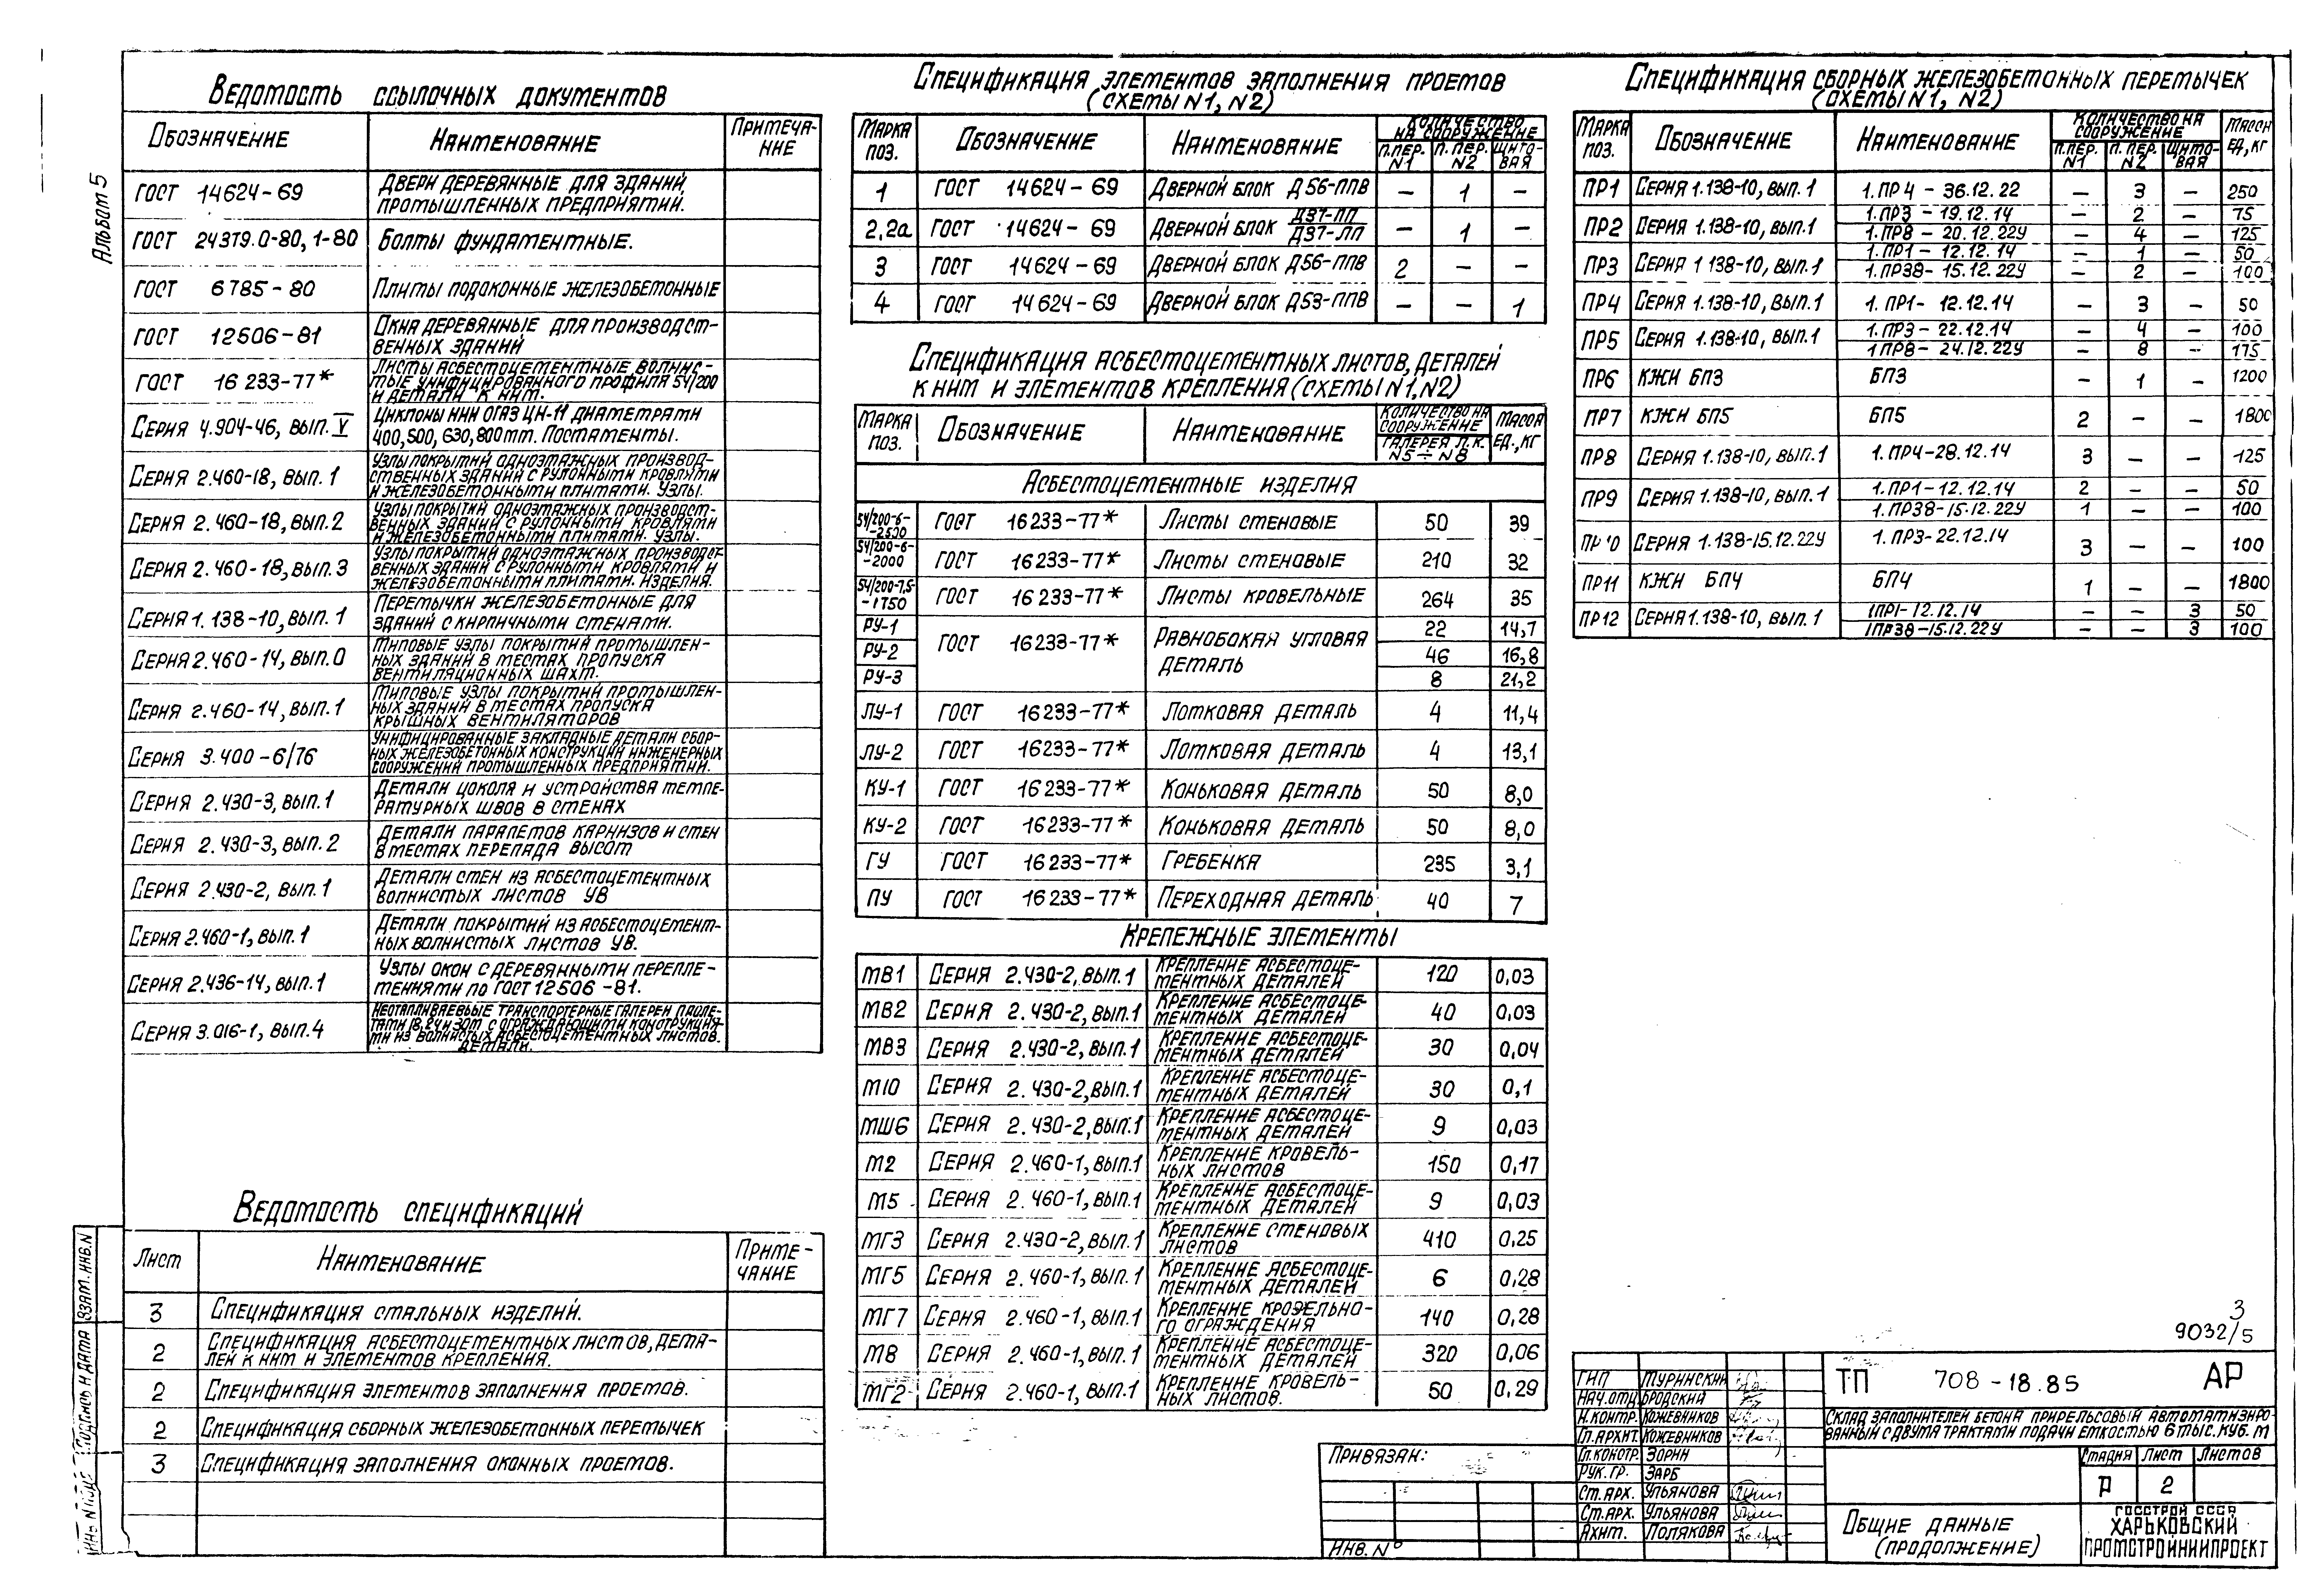 Альбом 5
Ведомость ссылочных документов
Обозначение Наименование Примеча-
ние
ГОСТ 14624-69 Двери деревянные для зданий,
промышленных предприятий.
ГОСТ 24379.0-80, 1-80 Болты фундаментные.
ГОСТ 6785-80 Плиты подоконные железобетонные
ГОСТ 12506-81 Окна деревянные для производст-
венных зданий
ГОСТ 16233-77* Листы асбестоцементные волнис-
тые унифицированного профиля 54/200
и детали к ним.
Серия 4.904-46, вып. V Циклоны НИИ ОГАЗ ЦН-11 диаметрами
400, 500, 630, 800 мм. Постаменты.
Серия 2.460-18, вып. 1 Узлы покрытий одноэтажных производ-
ственных зданий с рулонными кровлями
и железобетонными плитами. Узлы.
Серия 2.460-18, вып. 2 Узлы покрытий одноэтажных производст-
венных зданий с рулонными кровлями
и железобетонными плитами. Узлы.
Серия 2.460-18, вып. 3 Узлы покрытий одноэтажных производст-
венных зданий с рулонными кровлями и
железобетонными плитами. Изделия.
Серия 1.138-10, вып. 1 Перемычки железобетонные для
зданий с кирпичными стенами.
Серия 2.460-14, вып. 0 Типовые узлы покрытий промышлен-
ных зданий в местах пропуска
вентиляционных шахт.
Серия 2.460-14, вып. 1 Типовые узлы покрытий промышлен-
ных зданий в местах пропуска
крышных вентиляторов
Серия 3.400-6/76 Унифицированные закладные детали сбор-
ных железобетонных конструкций инженерных
сооружений промышленных предприятий.
Серия 2.430-3, вып. 1 Детали цоколя и устройства темпе-
ратурных швов в стенах
Серия 2.430-3, вып. 2 Детали парапетов карнизов и стен
в местах перепада высот
Серия 2.430-2, вып. 1 Детали стен из асбестоцементных
волнистых листов УВ
Серия 2.460-1, вып. 1 Детали покрытий из асбестоцемент-
ных волнистых листов УВ.
Серия 2.436-14, вып. 1 Узлы окон с деревянными перепле-
тениями по ГОСТ 12506-81.
Серия 3.016-1, вып. 4 Неотапливаевые транспортерные галереи проле-
тами 18, 24 и 30 м с ограждающими конструкция-
ми из волнистых асбестоцементных листов.
Детали.
Ведомость спецификаций
Лист Наименование Приме-
чание
3 Спецификация стальных изделий.
2 Спецификация асбестоцементных листов, дета-
лей к ним и элементов крепления.
2 Спецификация элементов заполнения проемов.
2 Спецификация сборных железобетонных перемычек
3 Спецификация заполнения оконных проемов.
Взам. инв. N
Подпись и дата
Спецификация элементов заполнения проемов
(схемы N1, N2)
Марка поз. Обозначение Наименование Количество на сооружение
п. пер. N1 п. пер. N2 Щито-
вая
1 ГОСТ 14624-69 Дверной блок Д56-ППВ — 1 —
2,2а ГОСТ 14624-69 Дверной блок Д37-ПП — 1 —
Д37-ЛП
3 ГОСТ 14624-69 Дверной блок Д56-ППВ 2 — —
4 ГОСТ 14624-69 Дверной блок Д53-ППВ — — 1
Спецификация асбестоцементных листов, деталей
к ним и элементов крепления (схемы N1, N2)
Марка поз. Обозначение Наименование Количество на сооружение Масса ед., кг
Галерея Л.К. N5 ÷ N8
Асбестоцементные изделия
54/200-6-
-2500 ГОСТ 16233-77* Листы стеновые 50 39
54/200-6-
-2000 ГОСТ 16233-77* Листы стеновые 210 32
54/200-7,5-
-1750 ГОСТ 16233-77* Листы кровельные 264 35
РУ-1 ГОСТ 16233-77* Равнобокая угловая 22 14,7
РУ-2 деталь 46 16,8
РУ-3 8 21,2
ЛУ-1 ГОСТ 16233-77* Лотковая деталь 4 11,4
ЛУ-2 ГОСТ 16233-77* Лотковая деталь 4 13,1
КУ-1 ГОСТ 16233-77* Коньковая деталь 50 8,0
КУ-2 ГОСТ 16233-77* Коньковая деталь 50 8,0
ГУ ГОСТ 16233-77* Гребенка 235 3,1
ПУ ГОСТ 16233-77* Переходная деталь 40 7
Крепежные элементы
МВ1 Серия 2.430-2, вып. 1 Крепление асбестоце-
ментных деталей 120 0,03
МВ2 Серия 2.430-2, вып. 1 Крепление асбестоце-
ментных деталей 40 0,03
МВ3 Серия 2.430-2, вып. 1 Крепление асбестоце-
ментных деталей 30 0,04
М10 Серия 2.430-2, вып. 1 Крепление асбестоце-
ментных деталей 30 0,1
МШ6 Серия 2.430-2, вып. 1 Крепление асбестоце-
ментных деталей 9 0,03
М2 Серия 2.460-1, вып. 1 Крепление кровель-
ных листов 150 0,17
М5 Серия 2.460-1, вып. 1 Крепление асбестоце-
ментных деталей 9 0,03
МГ3 Серия 2.430-2, вып. 1 Крепление стеновых
листов 410 0,25
МГ5 Серия 2.460-1, вып. 1 Крепление асбестоце-
ментных деталей 6 0,28
МГ7 Серия 2.460-1, вып. 1 Крепление кровельно-
го ограждения 140 0,28
М8 Серия 2.460-1, вып. 1 Крепление асбестоце-
ментных деталей 320 0,06
МГ2 Серия 2.460-1, вып. 1 Крепление кровель-
ных листов. 50 0,29
Спецификация сборных железобетонных перемычек
(схемы N1, N2)
Марка поз. Обозначение Наименование Количество на сооружение Масса ед., кг
п. пер. N1 п. пер. N2 Щито-
вая
ПР1 Серия 1.138-10, вып. 1 1.ПР4-36.12.22 — 3 — 250
ПР2 Серия 1.138-10, вып. 1 1.ПР3-19.12.14 — 2 — 75
1.ПР8-20.12.22У — 4 — 125
ПР3 Серия 1.138-10, вып. 1 1.ПР1-12.12.14 — 1 — 50
1.ПР38-15.12.22У — 2 — 100
ПР4 Серия 1.138-10, вып. 1 1.ПР1-12.12.14 — 3 — 50
ПР5 Серия 1.138-10, вып. 1 1.ПР3-22.12.14 — 4 — 100
1ПР8-24.12.22У — 8 — 175
ПР6 КЖИ БП3 БП3 — 1 — 1200
ПР7 КЖИ БП5 БП5 2 — — 1800
ПР8 Серия 1.138-10, вып. 1 1.ПР4-28.12.14 3 — — 125
ПР9 Серия 1.138-10, вып. 1 1.ПР1-12.12.14 2 — — 50
1.ПР38-15.12.22У 1 — — 100
ПР10 Серия 1.138-15.12.22У 1.ПР3-22.12.14 3 — — 100
ПР11 КЖИ БП4 БП4 1 — — 1800
ПР12 Серия 1.138-10, вып. 1 1ПР1-12.12.14 — — 3 50
1ПР38-15.12.22У — — 3 100
3
9032/5
Привязан:
Инв. N°
ГИП Туринский
Нач. отд. Бродский
Н. контр. Кожевников
Гл. архит. Кожевников
Гл. констр. Зорин
Рук. гр. Зарб
Ст. арх. Ульянова
Ст. арх. Ульянова
Ахит. Полякова
ТП 708-18.85 АР
Склад заполнителей бетона прирельсовый автоматизиро-
ванный с двумя трактами подачи емкостью 6 тыс. куб. м
Стадия Лист Листов
Р 2
Общие данные
(продолжение)
Госстрой СССР
Харьковский
Промстройниипроект